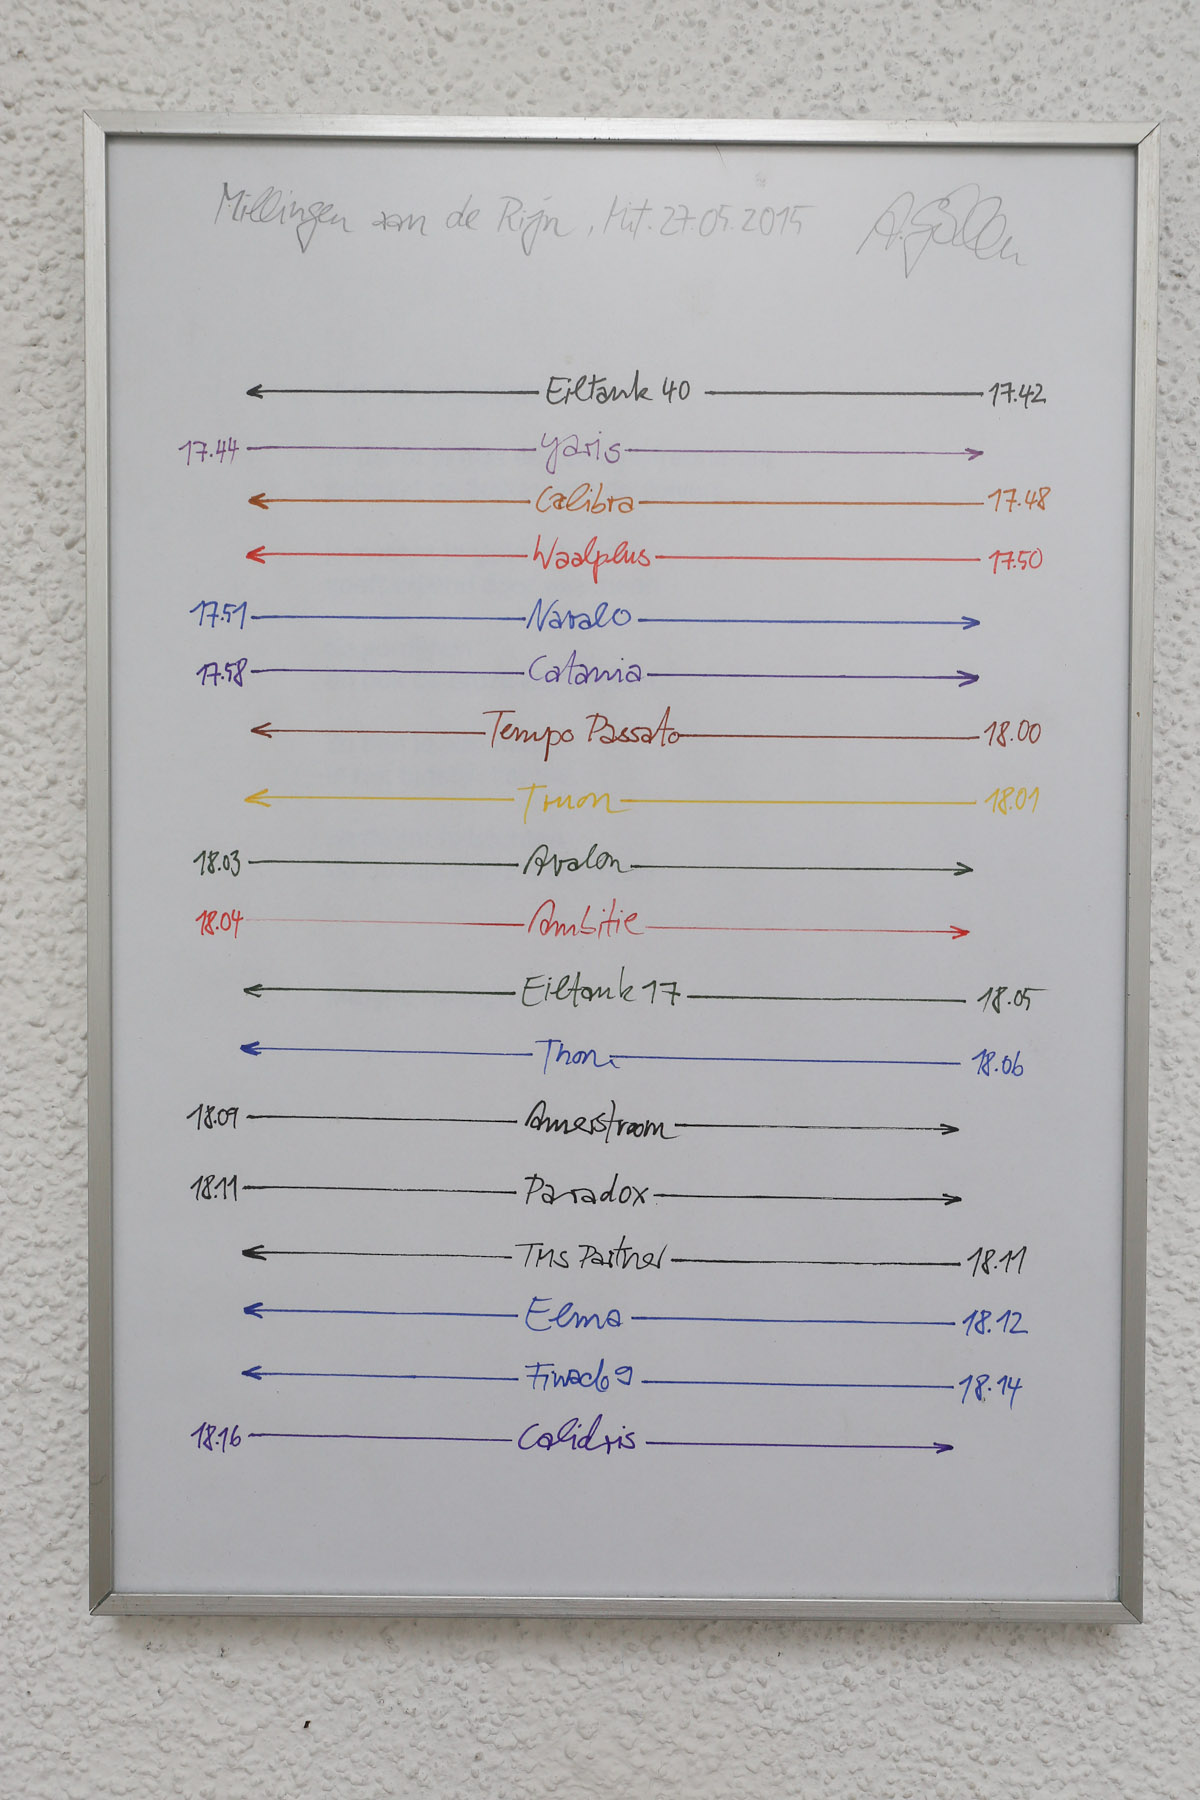 Millingen aan de Rijn, Mit. 27.05.2015
Eiltank 40 17.42
17.44 Yaris
Calibra 17.48
Waalplus 17.50
17.51 Navalo
17.58 Catania
Tempo Passato 18.00
18.01
18.03 Avalon
18.04 Ambitie
Eiltank 17 18.05
18.06
18.09 Amerstroom
18.11 Paradox
TMS Partner 18.11
Elma 18.12
18.14
18.16 Calidris